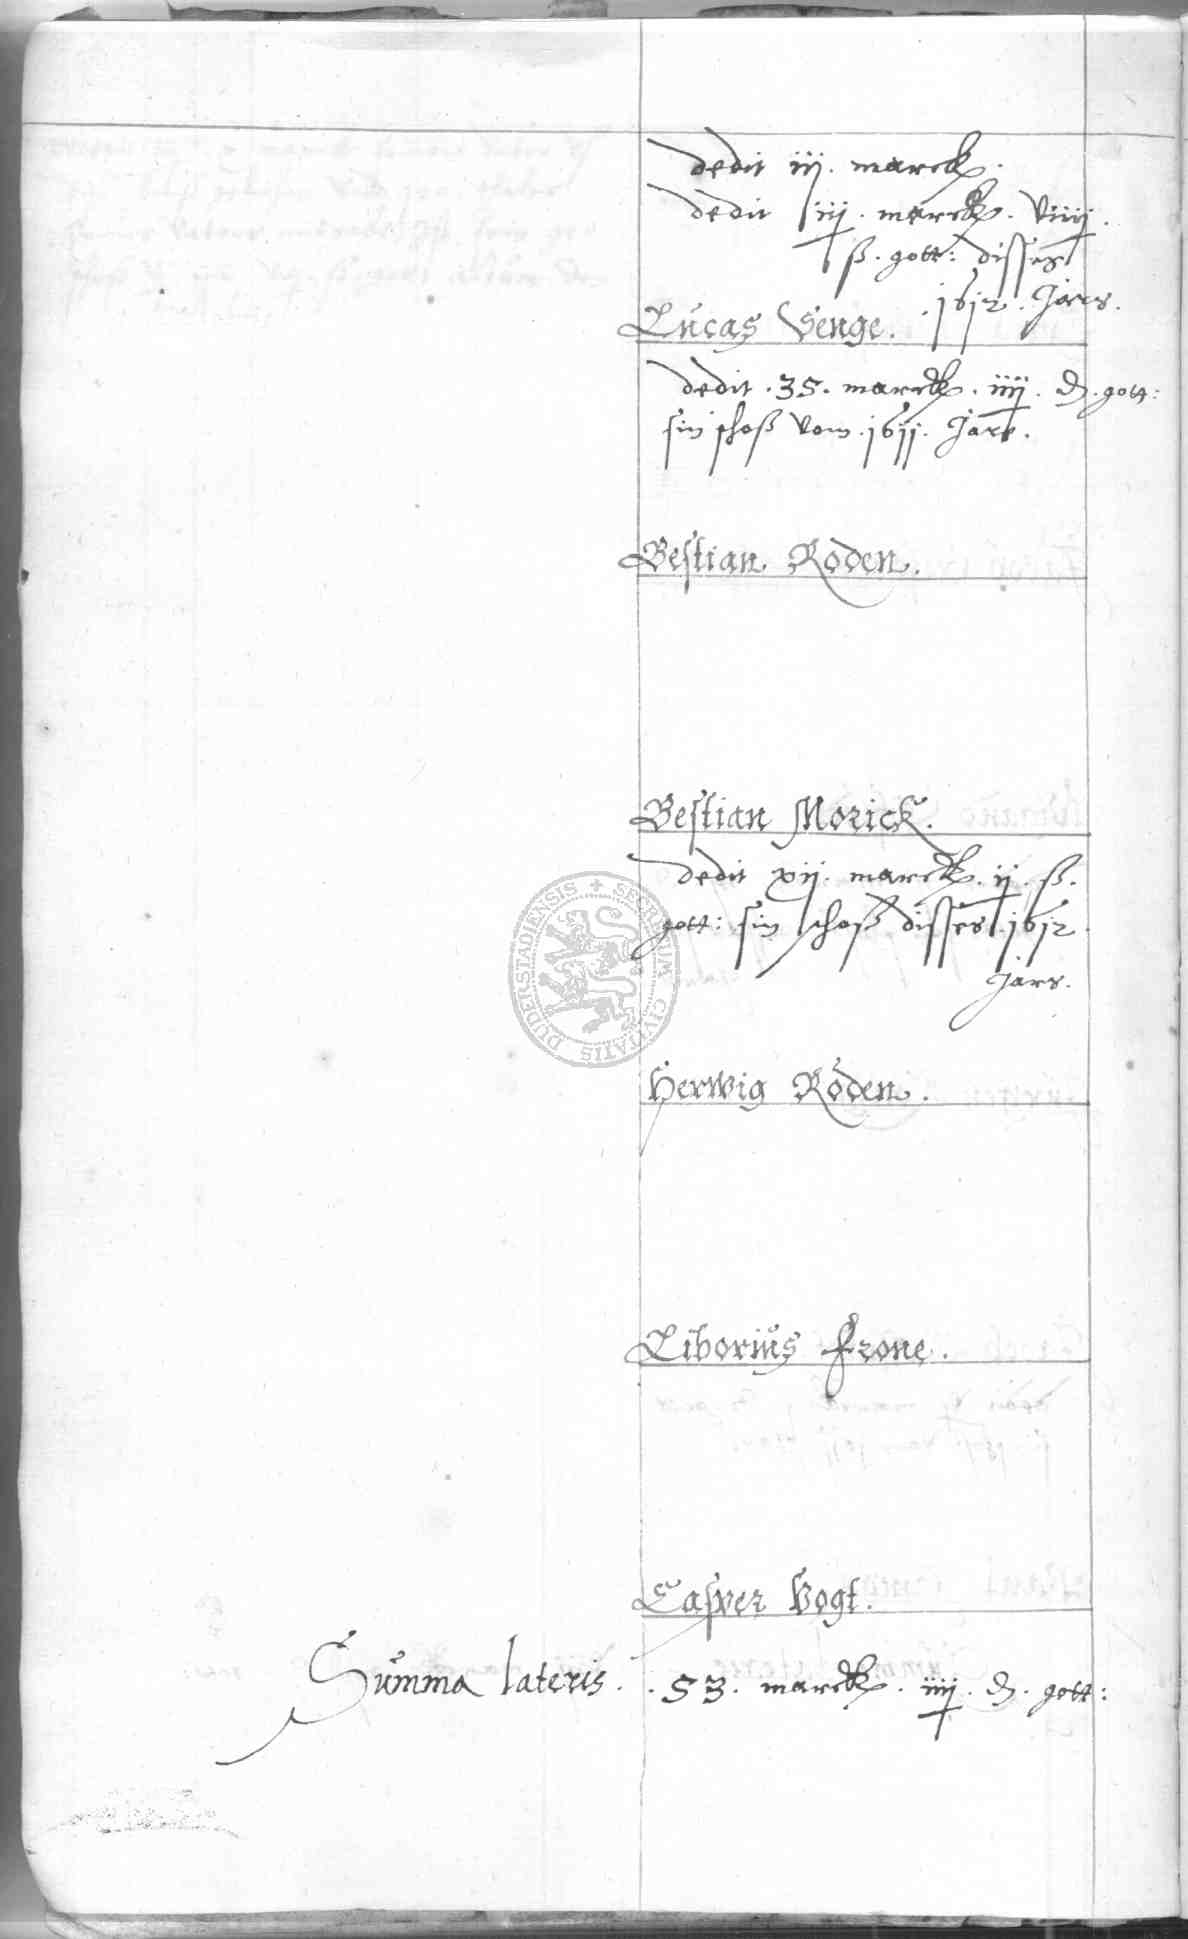 dedit iij. marck.
dedit iiij. marck. viiij.
ß. gott: disses
.1612. Jars.
Lucas Senge.
dedit .35. marck. iiij. ₰. gott:
sin schoß vom .1611. Jare.
Bestian Roden.
Bestian Morick.
dedit xij. marck. ij. ß.
gott: sin schoß disses .1612.
Jars.
Herwig Roden.
Liborius Frone.
Casper Vogt.
Summa lateris. .53. marck. iiij. ₰. gott:
SECRETUM CIVITATIS DUDERSTADIENSIS